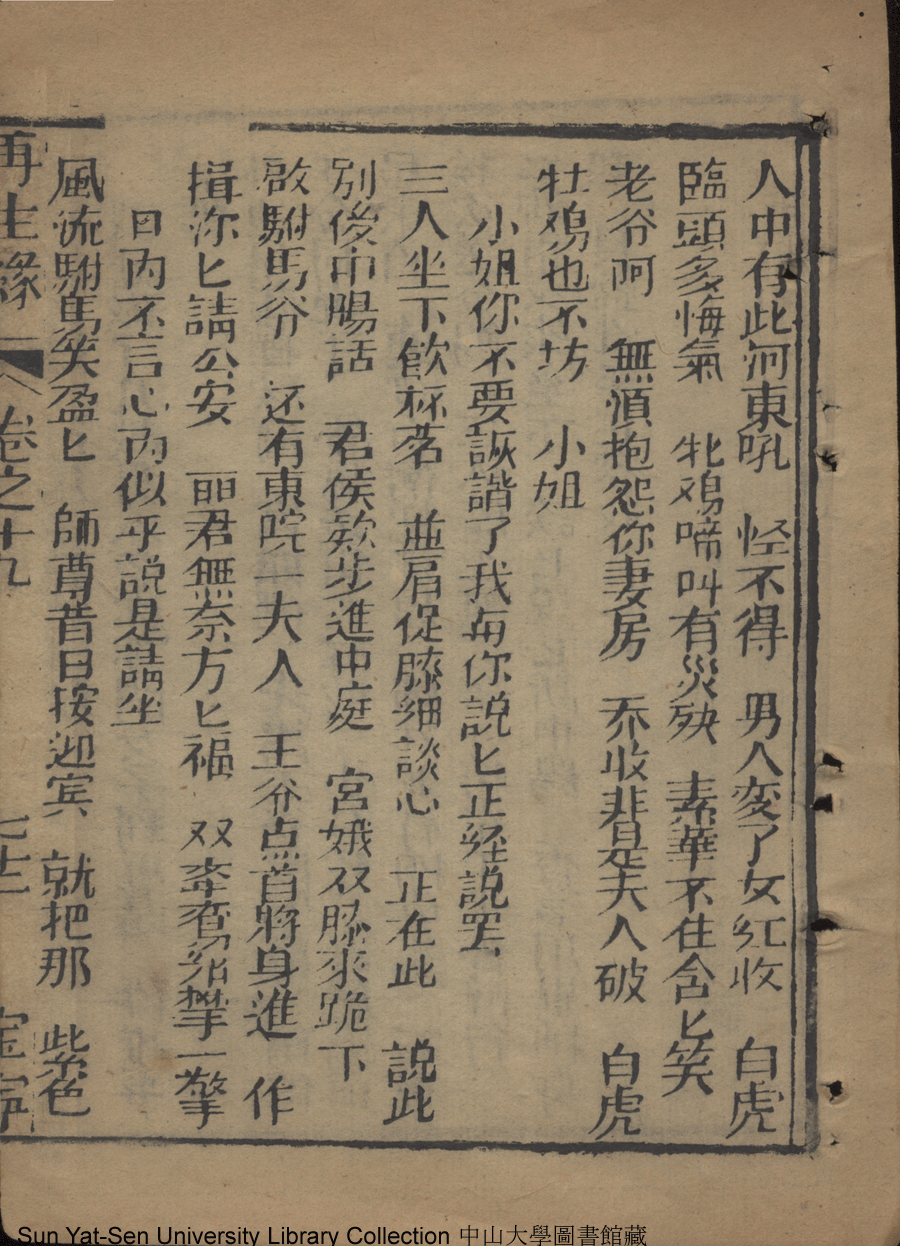 人中有此河東吼　怪不得　男人変了女紅收　白虎
臨頭多悔氣　牝鳮啼叫有災殃　素華不住含匕笑
老爷阿　無湏抱怨你妻房　乔收非是夫人破　白虎
牡鳮也不坊　小姐
小姐你不要詼諧了我每你說匕正経說罢
三人坐下飲杯茗　並肩促膝細談心　正在此　説此
别後中腸話　君侯欵步進中庭　宮娥双膝來跪下
啟駙馬爷　还有東院一夫人　王爷点首將身進　作
揖沵匕請公安　丽君無奈方匕福　双牽一擎
日内不言心内似乎說是請坐
風流駙馬笑盈匕　師尊昔日按迎宾　就把那　紫色
再生緣　卷之十九